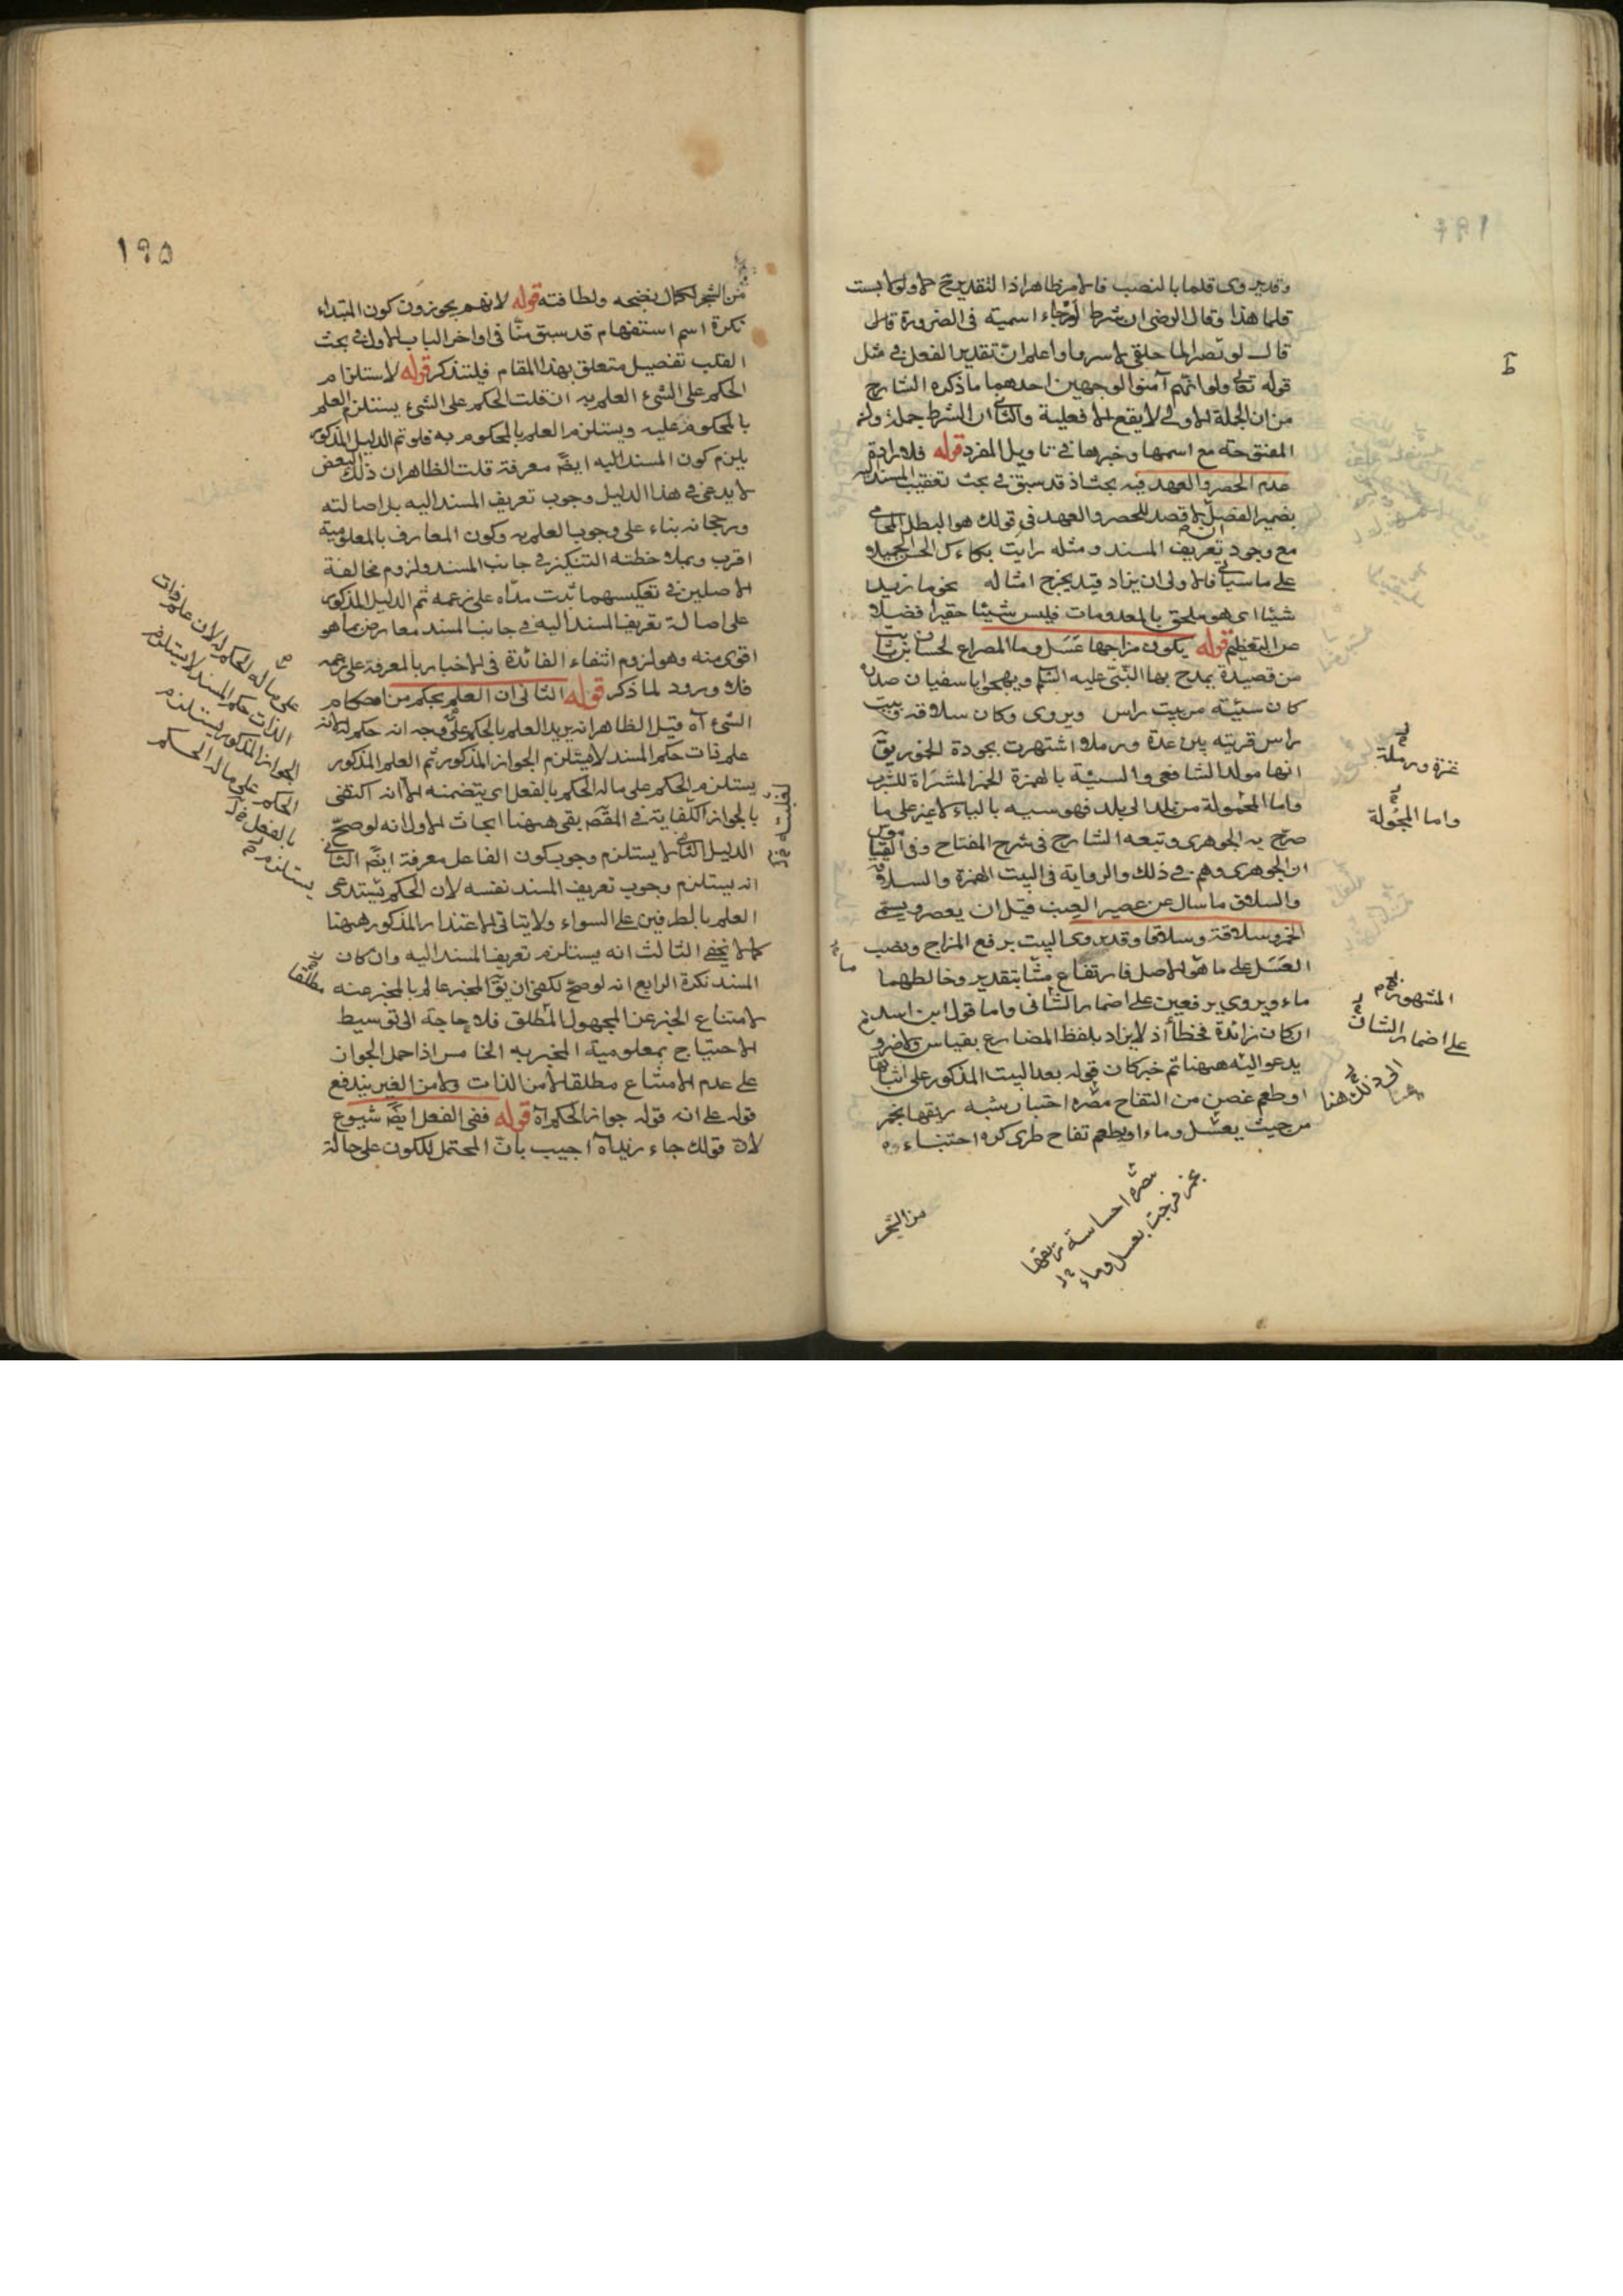 وقد يروى قلما بالنصب فالامر ظاهر اذ التقدير ح لا ولو لابست
قلما هذا وقال الرضى ان شرط لو جاء اسمية فى الضرورة قال
قال لو بغير الما حلقى واعلم ان تقدير الفعل فى مثل
قوله تعالى ولو انهم آمنوا لوجهين احدهما ما ذكره الشارح
من ان الجملة الاولى لا يقع الا فعلية والثانى ان الشرط جملة وان
المفتوحة مع اسمها وخبرها فى تاويل المفرد قوله فلارادة
عدم الحصر والعهد فيه بحث اذ قد سبق فى بحث تعقيب المسند اليه
بضمير الفصل قصد للحصر والعهد فى قولك هو البطل المحامى
مع وجود تعريف المسند ومثله رايت بكاءك الحسن الجميلا
على ما سياتى فالاولى ان يزاد قيد يخرج امثاله نحو ما زيد
شيئا اى هو ملحق بالمعدومات فليس شيئا حقيرا فضلا
عن العظيم قوله يكون مزاجها عسل وما المصراع لحسان بن ثابت
من قصيدة يمدح بها النبى عليه السلم ويهجو ابا سفيان صدره
كان سبيئة من بيت راس ويروى وكان سلافة وبيت
راس قرية بين غدة ورملا اشتهرت بجودة الخمور يق
انها مولد الشافعى والسبيئة بالهمزة الخمر المشتراة للشرب
واما المحمولة من بلد الى بلد فهو سبيه بالياء لا غير على ما
صرح به الجوهرى وتبعه الشارح فى شرح المفتاح وفى القاموس
ان الجوهرى وهم فى ذلك والرواية فى البيت الهمزة والسلافة
والسلاف ما سال عن عصير العنب قبل ان يعصر ويسمى
الخمر سلافة وسلافا وقد يروى البيت برفع المزاج ونصب
العسل على ما هو الاصل فارتفاع ماء بتقدير وخالطها
ماء ويروى برفعين على اضمار الشان واما قول ابن اسد
ان كان زائدة فخطأ اذ لا يزاد بلفظ المضارع بقياس ولا ضرورة
يدعو اليه ههنا ثم خبر كان قوله بعد البيت المذكور على انيابها
او طعم غصن من التفاح هصره اجتناء شبه ريقها بخمر
مزجت بعسل وماء او بطعم تفاح طرى كره اجتناء
غزة ورملة
واما المجولة
ماء
المشهور
على اضمار الشان
الى ذلك هنا
من الشجر
١٩٥
من الشجر لكمال نضجه ولطافته قوله لانهم يجوزون كون المبتداء
نكرة اسم استفهام قد سبق منا فى اواخر الباب الاول فى بحث
القلب تفصيل متعلق بهذا المقام فليتذكر قوله لاستلزام
الحكم على الشئ العلم به ان قلت الحكم على الشئ يستلزم العلم
بالمحكوم عليه ويستلزم العلم بالمحكوم به فلو تم الدليل المذكور
يلزم كون المسند اليه ايضا معرفة قلت الظاهر ان ذلك البعض
لا يدعى فى هذا الدليل وجوب تعريف المسند اليه بل اصالته
ورجحانه بناء على وجوب العلم به وكون المعارف بالمعلومية
اقرب وبملاحظة التنكير فى جانب المسند ولزوم مخالفة
الاصلين فى تعكيسهما ثبت مدعاه على زعمه ثم الدليل المذكور
على اصالة تعريف المسند اليه فى جانب المسند معارض بما هو
اقوى منه وهو لزوم انتفاء الفائدة فى الاخبار بالمعرفة على زعمه
فلا ورود لما ذكر قوله الثانى ان العلم بحكم من احكام
الشئ اه قيل الظاهر انه يريد العلم بالحكم على وجه انه حكم له لانه
علم فات حكم المسند لا يستلزم الجواز المذكور ثم العلم المذكور
يستلزم الحكم على ماله الحكم بالفعل اى يتضمنه الا انه اكتفى
بالجواز لكفايته فى المقصر بقى ههنا ابحاث الاول انه لو صح
الدليل الثانى لاستلزم وجوب كون الفاعل معرفة ايضا الثانى
انه يستلزم وجوب تعريف المسند نفسه لان الحكم يستدعى
العلم بالطرفين على السواء ولا يتاتى الاعتذار المذكور ههنا
كما لا يخفى الثالث انه يستلزم تعريف المسند اليه وان كان
المسند نكرة الرابع انه لو صح لكفى ان يق المخبر عالم بالمخبر عنه
لامتناع الخبر عن المجهول المطلق فلا حاجة الى توسيط
الاحتياج بمعلومية المخبر به الخامس اذا حمل الجواز
على عدم الامتناع مطلقا لا من الذات ولا من الغير يندفع
قوله على انه قوله جواز الحكم اه قوله ففى الفعل ايضا شيوع
لان قولك جاء زيد اه اجيب بان المحتمل للكون على حالة
على ماله الحكم
الذات حكم المسند لا يستلزم
الجواز المذكور يستلزم
الحكم على ماله الحكم
بالفعل
يستلزم
مطلقا